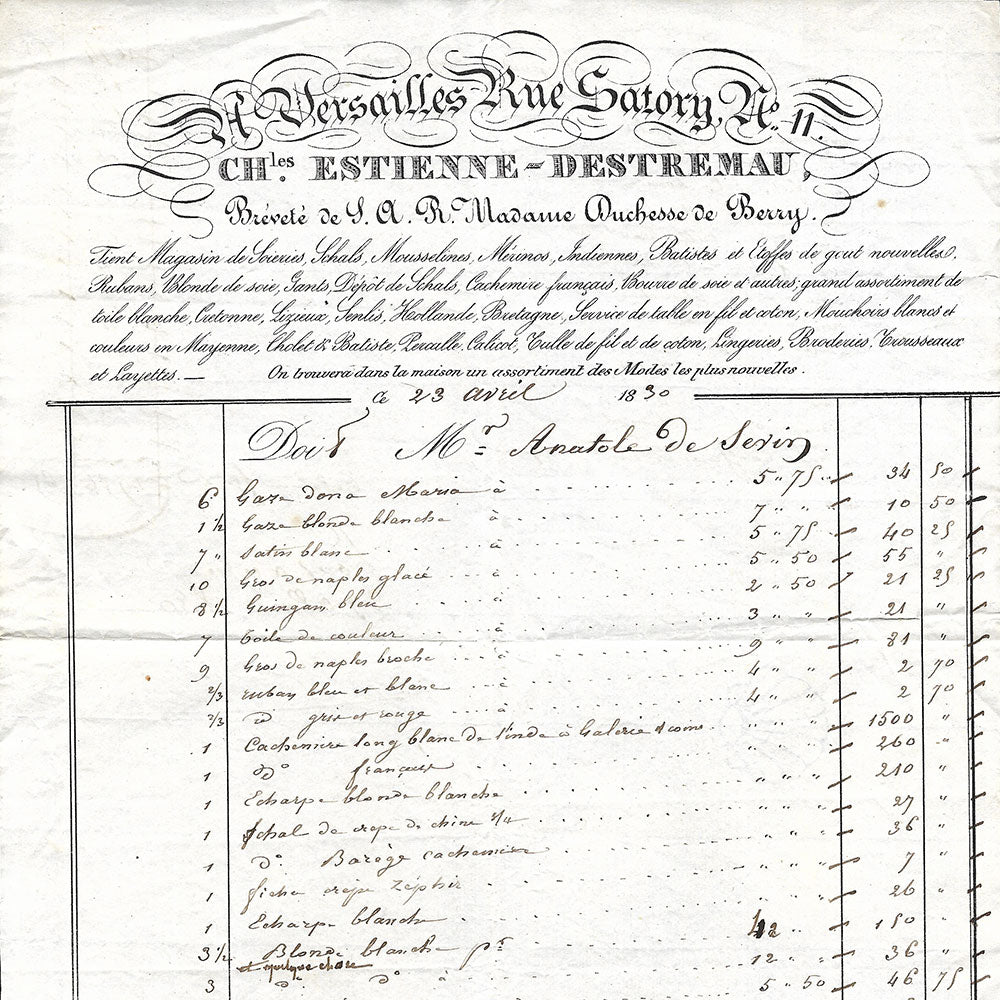 A Versailles Rue Satory, No. 11.
CHles. ESTIENNE-DESTREMAU,
Bréveté de S. A. R. Madame Duchesse de Berry.
Tient Magasin de Soieries, Schals, Mousselines, Mérinos, Indiennes, Batistes et Etoffes de gout nouvelles.
Rubans, Blonde de soie, Gants, Dépôt de Schals, Cachemire français, Bourre de soie et autres; grand assortiment de
toile blanche, Cretonne, Lizieux, Senlis, Hollande, Bretagne, Service de table en fil et coton, Mouchoirs blancs et
couleurs en Mayenne, Cholet & Batiste, Percalle, Calicot, Tulle de fil et de coton, Lingeries, Broderies, Trousseaux
et Layettes. — On trouvera dans la maison un assortiment des Modes les plus nouvelles.
Ce 23 avril 1830
Doit Mr Anatole de Serin
6 Gaze dona Maria à 5 " 75 34 50
1 1/2 Gaze blonde blanche à 7 " " 10 50
7 " Satin blanc à 5 " 75 40 25
10 Gros de naples glacé à 5 " 50 55 "
8 1/2 Guingan bleu à 2 " 50 21 25
7 toile de couleur à 3 " " 21 "
9 Gros de naples broché à 9 " " 81 "
2/3 ruban bleu et blanc à 4 " " 2 70
2/3 do gris et rouge à 4 " " 2 70
1 Cachemire long blanc de l'inde à Galerie & coins " " " 1500 "
1 do français 260 "
1 Echarpe blonde blanche " " " 210 "
1 Schal de crepe de chine " " " 27 "
1 do. Barège cachemire " " " 36 "
1 fichu crêpe Zéphir 7 "
1 Echarpe blanche 26 "
3 1/2 Blonde blanche pr 42 " 150 "
et quelque chose
3 do do à 12 " " 36 "
5 " 50 46 75